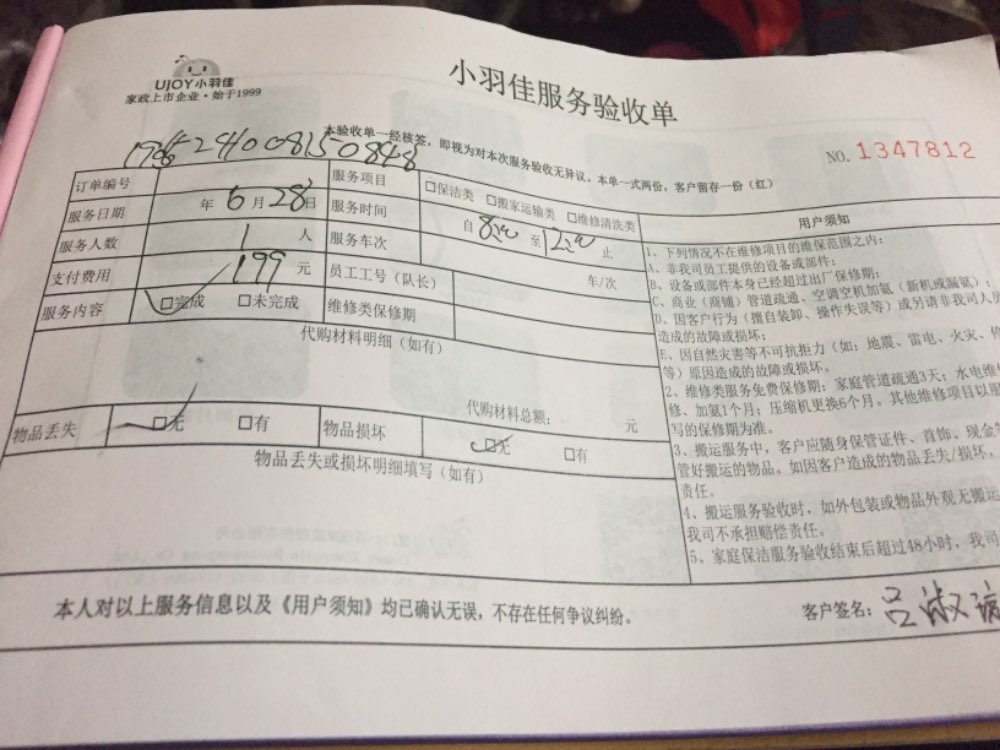 UJOY小羽佳
家政上市企业·始于1999
小羽佳服务验收单
本验收单一经核签，即视为对本次服务验收无异议。本单一式两份，客户留存一份（红）
NO. 1347812
订单编号
服务项目 □保洁类 □搬家运输类 □维修清洗类
服务日期 年 6 月 28 日 服务时间 自 8:00 至 12:00 止
服务人数 1 人 服务车次 车/次
支付费用 199 元 员工工号（队长）
服务内容 □完成 □未完成 维修类保修期
代购材料明细（如有）
代购材料总额： 元
物品丢失 □无 □有 物品损坏 □无 □有
物品丢失或损坏明细填写（如有）
用户须知
1、下列情况不在维修项目的维保范围之内：
A、非我司员工提供的设备或部件；
B、设备或部件本身已经超过出厂保修期；
C、商业（商铺）管道疏通、空调空机加氟（新机或漏氟）；
D、因客户行为（擅自装卸、操作失误等）或另请非我司人员
造成的故障或损坏；
E、因自然灾害等不可抗拒力（如：地震、雷电、火灾、
等）原因造成的故障或损坏。
2、维修类服务免费保修期：家庭管道疏通3天；水电维
修、加氟1个月；压缩机更换6个月。其他维修项目以服
写的保修期为准。
3、搬运服务中，客户应随身保管证件、首饰、现金等
管好搬运的物品。如因客户造成的物品丢失/损坏，
责任。
4、搬运服务验收时，如外包装或物品外观无搬运
我司不承担赔偿责任。
5、家庭保洁服务验收结束后超过48小时，我司
本人对以上服务信息以及《用户须知》均已确认无误，不存在任何争议纠纷。
客户签名： 吕淑